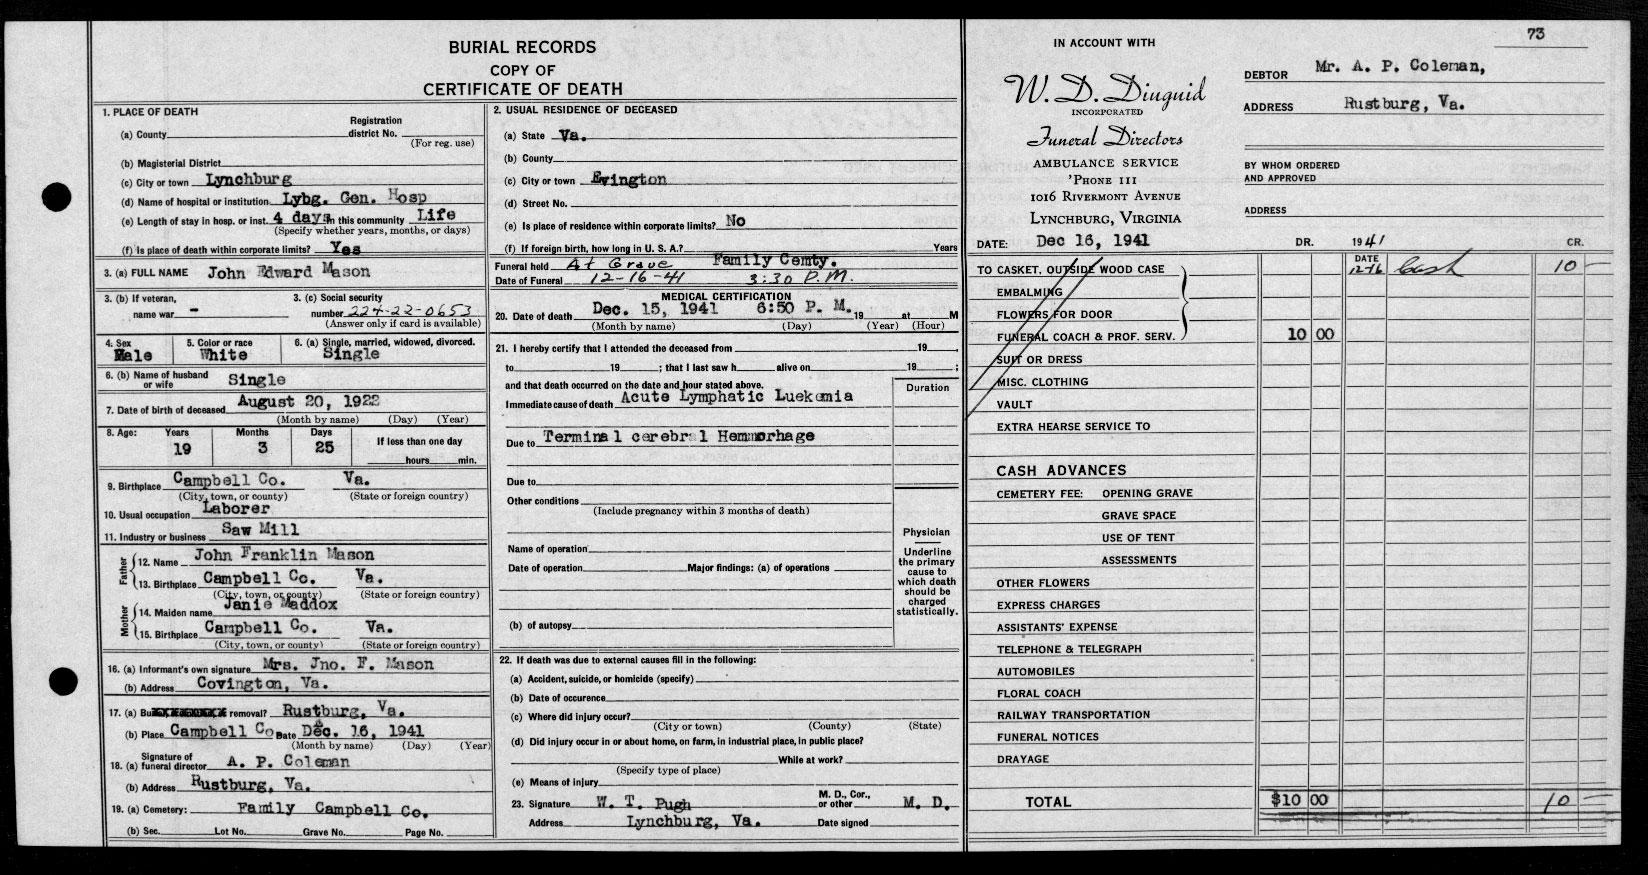 BURIAL RECORDS
COPY OF
CERTIFICATE OF DEATH
1. PLACE OF DEATH
Registration
(a) County district No.
(For reg. use)
(b) Magisterial District
(c) City or town Lynchburg
(d) Name of hospital or institution Lybg. Gen. Hosp
(e) Length of stay in hosp. or inst. 4 days In this community Life
(Specify whether years, months, or days)
(f) Is place of death within corporate limits? Yes
3. (a) FULL NAME John Edward Mason
3. (b) If veteran, 3. (c) Social security
name war - number 224-22-0653
(Answer only if card is available)
4. Sex 5. Color or race 6. (a) Single, married, widowed, divorced.
Male White Single
6. (b) Name of husband
or wife Single
7. Date of birth of deceased August 20, 1922
(Month by name) (Day) (Year)
8. Age: Years Months Days If less than one day
19 3 25 hours min.
9. Birthplace Campbell Co. Va.
(City, town, or county) (State or foreign country)
10. Usual occupation Laborer
11. Industry or business Saw Mill
Father
12. Name John Franklin Mason
13. Birthplace Campbell Co. Va.
(City, town, or county) (State or foreign country)
Mother
14. Maiden name Janie Maddox
15. Birthplace Campbell Co. Va.
(City, town, or county) (State or foreign country)
16. (a) Informant's own signature Mrs. Jno. F. Mason
(b) Address Covington, Va.
17. (a) Bu removal? Rustburg, Va.
(b) Place Campbell Co Date Dec. 16, 1941
(Month by name) (Day) (Year)
Signature of
18. (a) funeral director A. P. Coleman
(b) Address Rustburg, Va.
19. (a) Cemetery: Family Campbell Co.
(b) Sec. Lot No. Grave No. Page No.
2. USUAL RESIDENCE OF DECEASED
(a) State Va.
(b) County
(c) City or town Evington
(d) Street No.
(e) Is place of residence within corporate limits? No
(f) If foreign birth, how long in U. S. A.? Years
Funeral held At Grave Family Cemty.
Date of Funeral 12-16-41 3:30 P.M.
MEDICAL CERTIFICATION
20. Date of death Dec. 15, 1941 6:50 P. M. 19 at M
(Month by name) (Day) (Year) (Hour)
21. I hereby certify that I attended the deceased from 19 ,
to 19 ; that I last saw h alive on 19 ;
and that death occurred on the date and hour stated above. Duration
Immediate cause of death Acute Lymphatic Luekemia
Due to Terminal cerebral Hemmorhage
Due to
Other conditions
(Include pregnancy within 3 months of death)
Name of operation
Date of operation Major findings: (a) of operations
(b) of autopsy
Physician
Underline
the primary
cause to
which death
should be
charged
statistically.
22. If death was due to external causes fill in the following:
(a) Accident, suicide, or homicide (specify)
(b) Date of occurence
(c) Where did injury occur?
(City or town) (County) (State)
(d) Did injury occur in or about home, on farm, in industrial place, in public place?
While at work?
(Specify type of place)
(e) Means of injury
23. Signature W. T. Pugh M. D., Cor., or other M. D.
Address Lynchburg, Va. Date signed
73
IN ACCOUNT WITH
W. D. Diuguid
INCORPORATED
Funeral Directors
AMBULANCE SERVICE
'PHONE 111
1016 RIVERMONT AVENUE
LYNCHBURG, VIRGINIA
DEBTOR Mr. A. P. Coleman,
ADDRESS Rustburg, Va.
BY WHOM ORDERED
AND APPROVED
ADDRESS
DATE: Dec 16, 1941 DR. 1941 CR.
TO CASKET, OUTSIDE WOOD CASE DATE 12-16 Cash 10 —
EMBALMING
FLOWERS FOR DOOR
FUNERAL COACH & PROF. SERV. 10 00
SUIT OR DRESS
MISC. CLOTHING
VAULT
EXTRA HEARSE SERVICE TO
CASH ADVANCES
CEMETERY FEE: OPENING GRAVE
GRAVE SPACE
USE OF TENT
ASSESSMENTS
OTHER FLOWERS
EXPRESS CHARGES
ASSISTANTS' EXPENSE
TELEPHONE & TELEGRAPH
AUTOMOBILES
FLORAL COACH
RAILWAY TRANSPORTATION
FUNERAL NOTICES
DRAYAGE
TOTAL $10 00 10 —